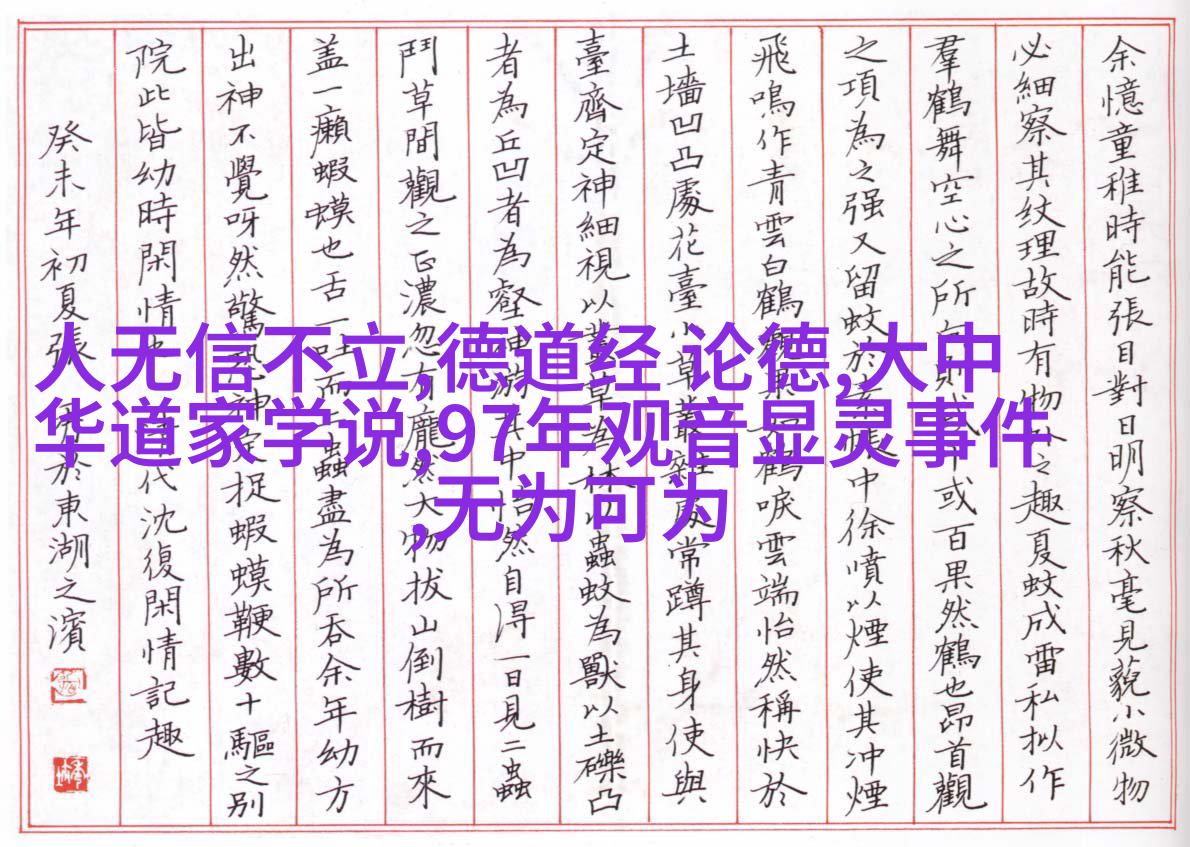 余憶童稚時能張目對日明察秋毫見藐小微物
必細察其纹理故時有物外之趣夏蚊成雷私拟作
羣鶴舞空心之所向則或千或百果然鶴也昂首觀
之項為之强又留蚊於素帳中徐噴以煙使其冲煙
飛鳴作青雲白鶴觀果如鶴唳雲端怡然稱快於
土墻凹凸處花臺小草叢雜處常蹲其身使與
臺齊定神細視以叢草為林以蟲蚊為獸以土礫凸
者為丘凹者為壑神游其中怡然自得一日見二蟲
鬥草間觀之正濃忽有龐然大物拔山倒樹而來
盖一癩蝦蟆也舌一吐而二蟲盡為所吞余年幼方
出神不覺呀然驚恐神定捉蝦蟆鞭數十驅之别
院此皆幼時閑情 代沈復閑情記趣
癸未年初夏張 於東湖之濱
人无信不立,德道经 论德,大中
华道家学说,97年观音显灵事件
,无为可为